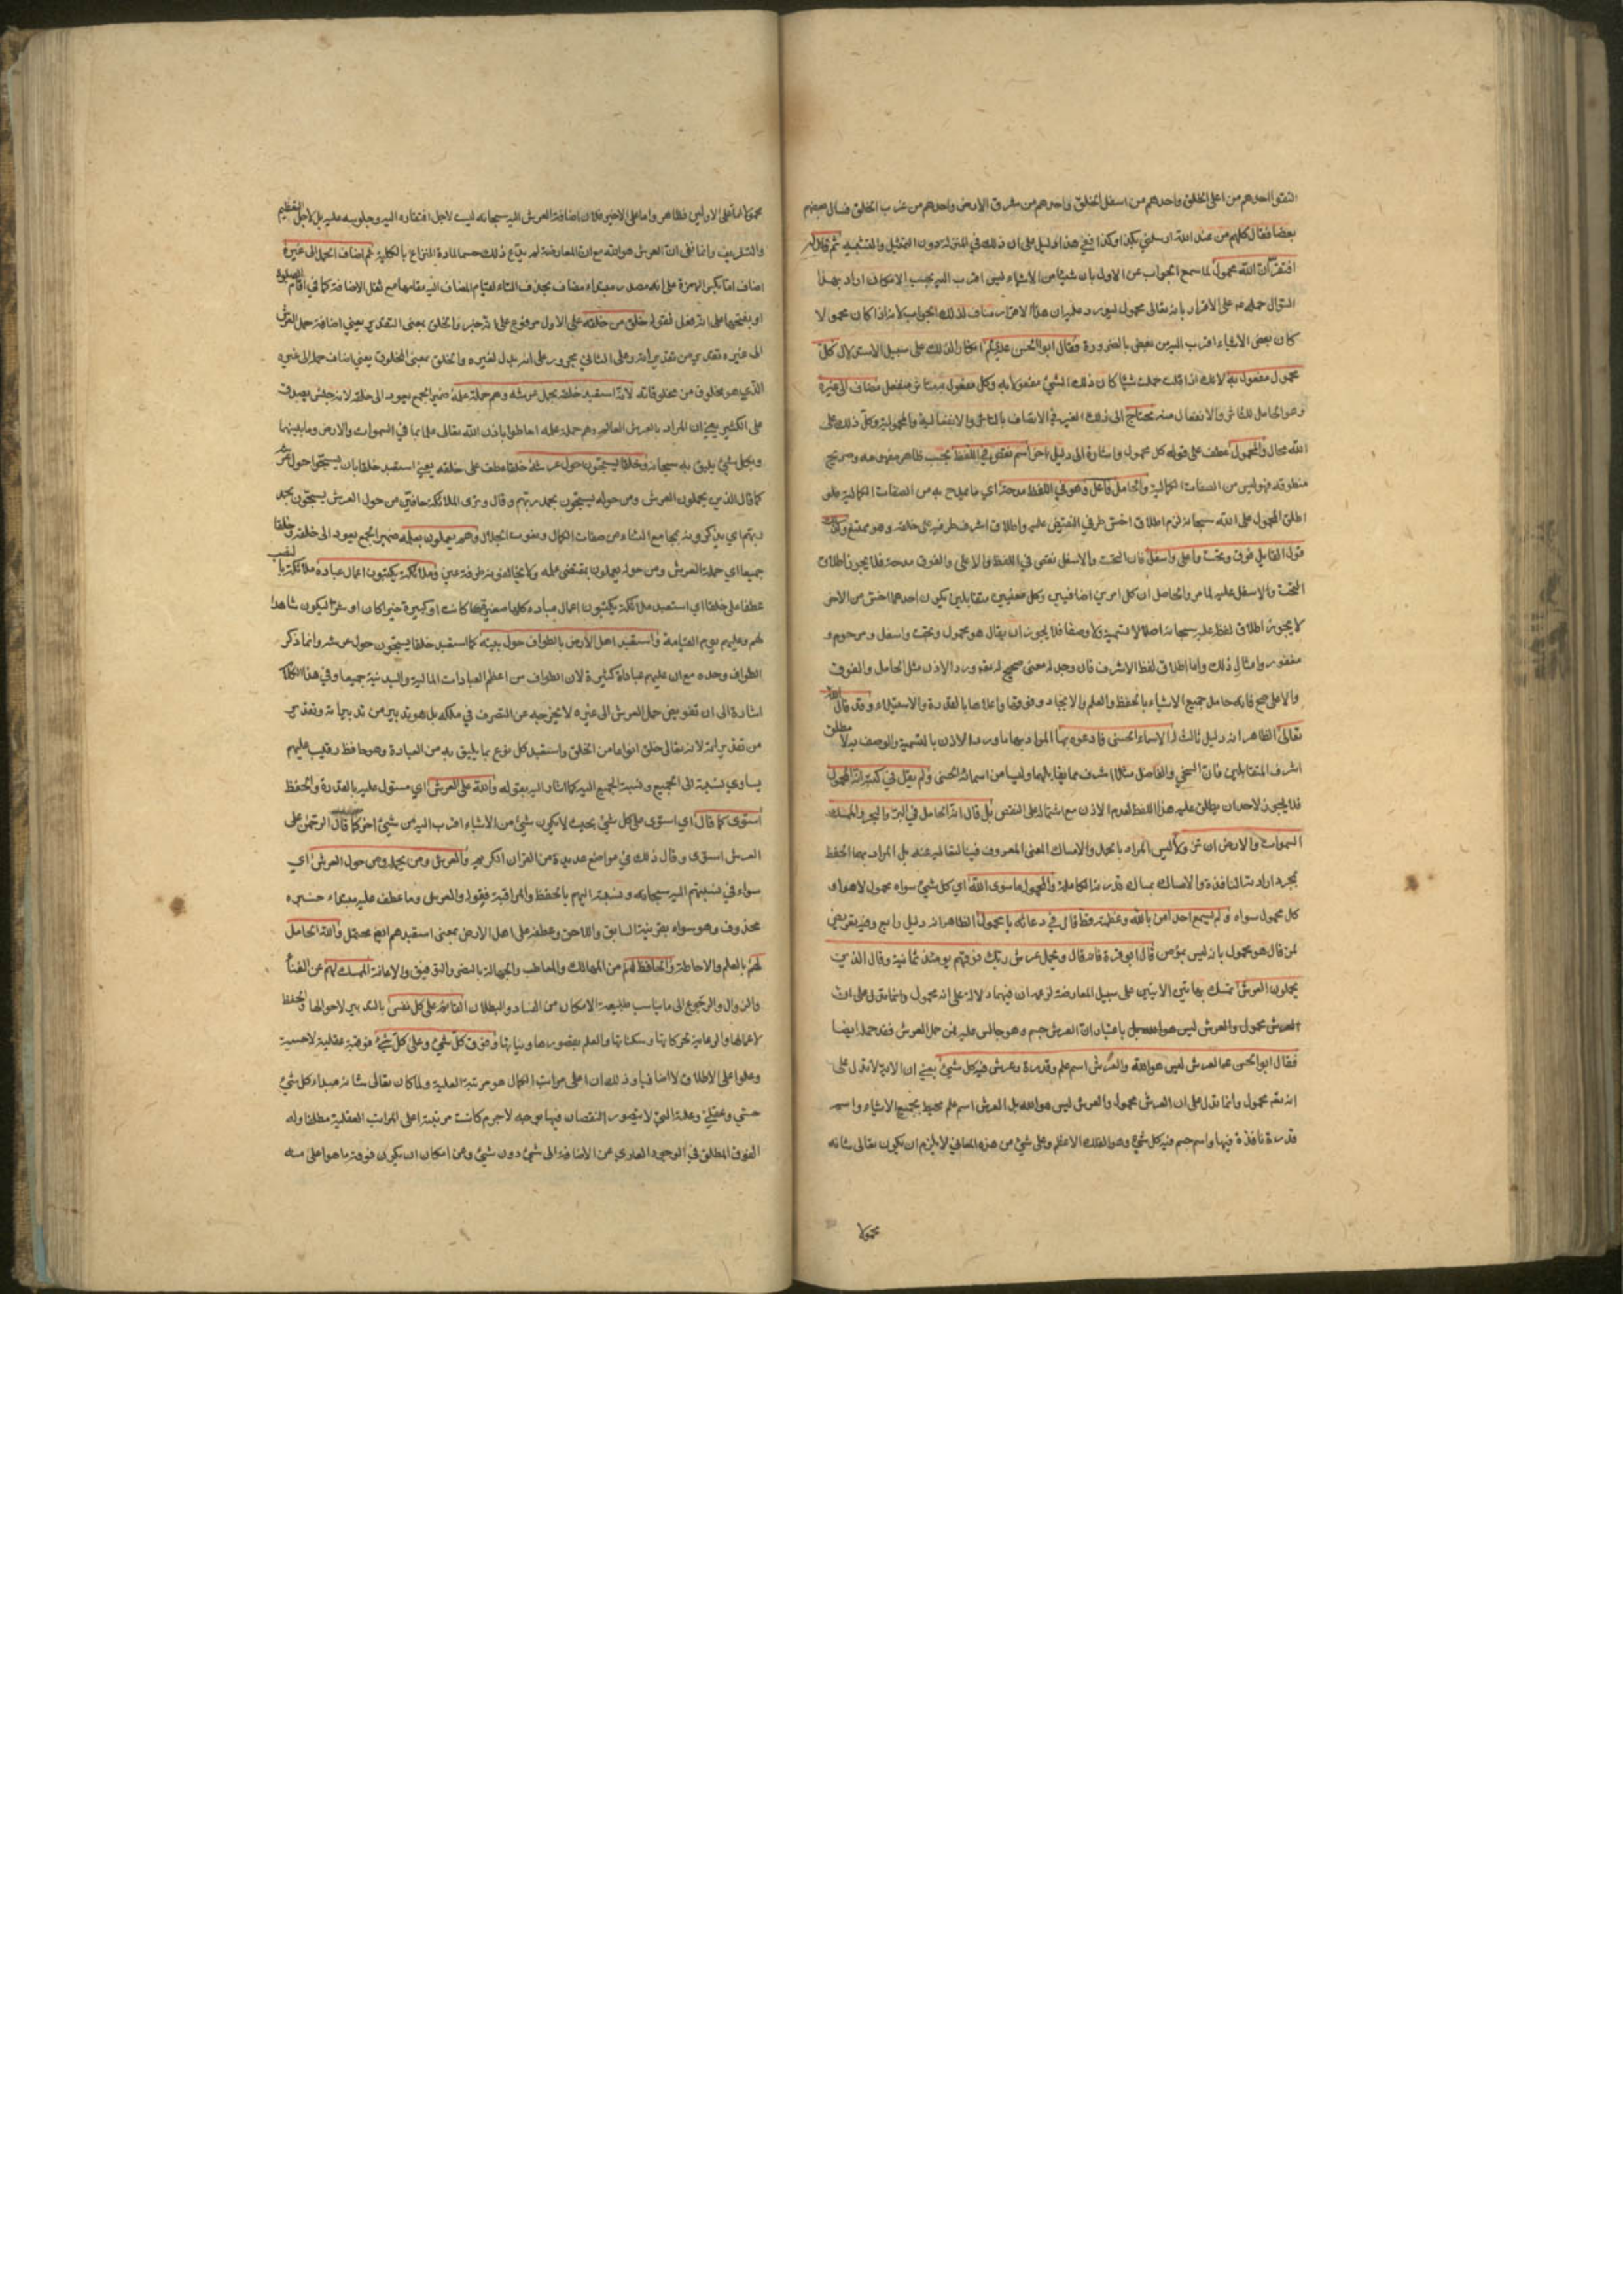 التقوا احدهم من اعلى الخلق واحدهم من اسفل الخلق واحدهم من مشرق الارض واحدهم من غرب الخلق فسال بعضهم
بعضا فقال كلهم من عند الله ارسلني بكذا وكذا ففي هذا دليل على ان ذلك في المنزلة دون التمثيل والتشبيه ثم قال له
افتقر ان الله محمول لما سمع الجواب عن الاول بان شيئا من الاشياء ليس اقرب اليه بحسب الامكان اراد بهذا
السؤال حمله على الاقرار بانه تعالى محمول ليورد عليه ان هذا الاقرار مناف لذلك الجواب لانه اذا كان محمولا
كان بعض الاشياء اقرب اليه من بعض بالضرورة فقال ابو الحسن عليه السلام انكارا لذلك على سبيل الاستدلال كل
محمول مفعول به لانك اذا قلت حملت شيئا كان ذلك الشيء مفعولا به وكل مفعول منفعل مضاف الى غيره
وهو الحامل للتاثر والانفعال منه محتاج الى ذلك الغير في الاتصاف بالتاثر والانفعالية والمحمولية وكل ذلك على
الله محال والمحمول عطف على قوله كل محمول واشارة الى دليل اخر اسم نقص في اللفظ بحسب ظاهر مفهومه وصريح
منطوقه فهو ليس من الصفات الكمالية والحامل فاعل وهو في اللفظ مدحة اي ما يمدح به من الصفات الكمالية فلو
اطلق المحمول على الله سبحانه لزم اطلاق اخس طرفي النقيض عليه واطلاق اشرف طرفيه على خلقه وهو ممتنع وكذلك
قول القايل فوق وتحت واعلى واسفل فان التحت والاسفل نقص في اللفظ والاعلى والفوق مدحة فلا يجوز اطلاق
التحت والاسفل عليه لما مر والحاصل ان كل امرين اضافيين وكل معنيين متقابلين يكون احدهما اخس من الاخر
لا يجوز اطلاق لفظ عليه سبحانه اصلا لا تسمية ولا وصفا فلا يجوز ان يقال هو محمول وتحت واسفل ومرحوم و
مغفور وامثال ذلك واما اطلاق لفظ الاشرف فان وجد له معنى صحيح له مع ورود الاذن مثل الحامل والفوق
والاعلى صح فانه حامل جميع الاشياء بالحفظ والعلم والايجاد وفوقها واعلاها بالقدرة والاستيلاء وقد قال الله
تعالى الظاهر انه دليل ثالث له الاسماء الحسنى فادعوه بها المراد بها ما ورد به الاذن بالتسمية والوصف به لا مطلق
اشرف المتقابلين فان السخي والفاضل مثلا اشرف مما يقابلهما وليسا من اسمائه الحسنى ولم يقل في كتبه انه المحمول
فلا يجوز لاحد ان يطلق عليه هذا اللفظ لعدم الاذن مع اشتماله على النقص بل قال انه الحامل في البر والبحر والممسك
السموات والارض ان تزولا ليس المراد بالحمل والامساك المعنى المعروف فينا لتعاليه عنه بل المراد بهما الحفظ
بمجرد ارادته النافذة والامساك بمساك قدرته الكاملة والمحمول ما سوى الله اي كل شيء سواه محمول لا هو اي
كل محمول سواه ولم يسمع احد امن بالله وعظمته قط قال في دعائه يا محمول الظاهر انه دليل رابع وفيه تعريض
لمن قال هو محمول بانه ليس بمؤمن قال ابو قرة فانه قال ويحمل عرش ربك فوقهم يومئذ ثمانية وقال الذين
يحملون العرش تمسك بهاتين الايتين على سبيل المعارضة لزعمه ان فيهما دلالة على انه محمول وانما تدل على ان
العرش محمول والعرش ليس هو الله بل باعتبار ان العرش جسم وهو جالس عليه فمن حمل العرش فقد حمله ايضا
فقال ابو الحسن عليه السلام العرش ليس هو الله والعرش اسم علم وقدرة وعرش فيه كل شيء يعني ان الاية لا تدل على
انه تعالى محمول وانما تدل على ان العرش محمول والعرش ليس هو الله بل العرش اسم علم محيط بجميع الاشياء واسم
قدرة نافذة فيها واسم جسم فيه كل شيء وهو الفلك الاعظم وعلى شيء من هذه المعاني لا يلزم ان يكون تعالى شانه
محمولا
محمولا اما على الاولين فظاهر واما على الاخير فلان اضافة العرش اليه سبحانه ليست لاجل افتقاره اليه وجلوسه عليه بل لاجل التعظيم
والتشريف وانما نفى ان العرش هو الله مع ان المعارضة لم يدع ذلك حسما لمادة النزاع بالكلية ثم اضاف الحمل الى غيره
اضاف اما بكسر الهمزة على انه مصدر مبتداء مضاف بحذف التاء لقيام المضاف اليه مقامها مع ثقل الاضافة كما في اقام الصلوة
او بفتحها على انه فعل فقوله خلق من خلقه على الاول مرفوع على انه خبر والخلق بمعنى التقدير يعني اضافة حمل العرش
الى غيره تقدير من تقديراته وعلى الثاني مجرور على انه بدل لغيره والخلق بمعنى المخلوق يعني اضاف حمله الى غيره
الذي هو مخلوق من مخلوقاته لانه استعبد خلقه بحمل عرشه وهم حملة علمه ضمير الجمع يعود الى خلقه لانه جنس يصدق
على الكثير يعني ان المراد بالعرش العلم وهم حملة علمه احاطوا باذن الله تعالى علما بما في السموات والارض وما بينهما
وبكل شيء يليق به سبحانه وخلقا يسبحون حول عرشه خلقا عطف على خلقه يعني استعبد خلقا بان يسبحوا حول عرشه
كما قال الذين يحملون العرش ومن حوله يسبحون بحمد ربهم وقال وترى الملائكة حافين من حول العرش يسبحون بحمد
ربهم اي يذكرونه بمجامع الثناء من صفات الكمال ونعوت الجلال وهم يعملون بعلمه ضمير الجمع يعود الى خلقه وخلقا
جميعا اي حملة العرش ومن حوله يعملون بمقتضى علمه ولا يخالفونه طرفة عين وملائكة يكتبون اعمال عباده ملائكة بالنصب
عطفا على خلقا اي استعبد ملائكة يكتبون اعمال عباده كلها صغيرة كانت او كبيرة خيرا كان او شرا ليكون شاهدا
لهم وعليهم يوم القيامة واستعبد اهل الارض بالطواف حول بيته كما استعبد خلقا يسبحون حول عرشه وانما ذكر
الطواف وحده مع ان عليهم عبادة كثيرة لان الطواف من اعظم العبادات المالية والبدنية جميعا وفي هذا الكلام
اشارة الى ان تفويض حمل العرش الى غيره لا يخرجه عن التصرف في ملكه بل هو تدبير من تدبيراته وتقدير
من تقديراته لانه تعالى خلق انواعا من الخلق واستعبد كل نوع بما يليق به من العبادة وهو حافظ رقيب عليهم
يساوي نسبته الى الجميع ونسبة الجميع اليه كما اشار اليه بقوله والله على العرش اي مستول عليه بالقدرة والحفظ
استوى كما قال اي استوى على كل شيء بحيث لا يكون شيء من الاشياء اقرب اليه من شيء اخر كما قال الرحمن على
العرش استوى وقال ذلك في مواضع عديدة من القران الكريم والعرش ومن يحمله ومن حول العرش اي
سواء في نسبتهم اليه سبحانه ونسبته اليهم بالحفظ والمراقبة فقوله والعرش وما عطف عليه مبتداء خبره
محذوف وهو سواء بقرينة السابق واللاحق وعطفه على اهل الارض بمعنى استعبدهم ايضا محتمل والله الحامل
لهم بالعلم والاحاطة والحافظ لهم من المهالك والمعاطب والجهالة بالنصر والتوفيق والاعانة الممسك لهم عن الفناء
والزوال والرجوع الى ما يناسب طبيعة الامكان من الفساد والبطلان القائم على كل نفس بالتدبير لاحوالها والحفظ
لاعمالها والرعاية لحركاتها وسكناتها والعلم بقصورها ونياتها وفوق كل شيء وعلى كل شيء فوقية عقلية لا حسية
وعلوا على الاطلاق لا اضافيا وذلك ان اعلى مراتب الكمال هو مرتبة العلية ولما كان تعالى شانه مبداء كل شيء
حسي وعقلي وعلته التي لا يتصور النقصان فيها بوجه لا جرم كانت مرتبته اعلى المراتب العقلية مطلقا وله
الفوق المطلق في الوجود العاري عن الاضافة الى شيء دون شيء وعن امكان ان يكون فوقه ما هو اعلى منه